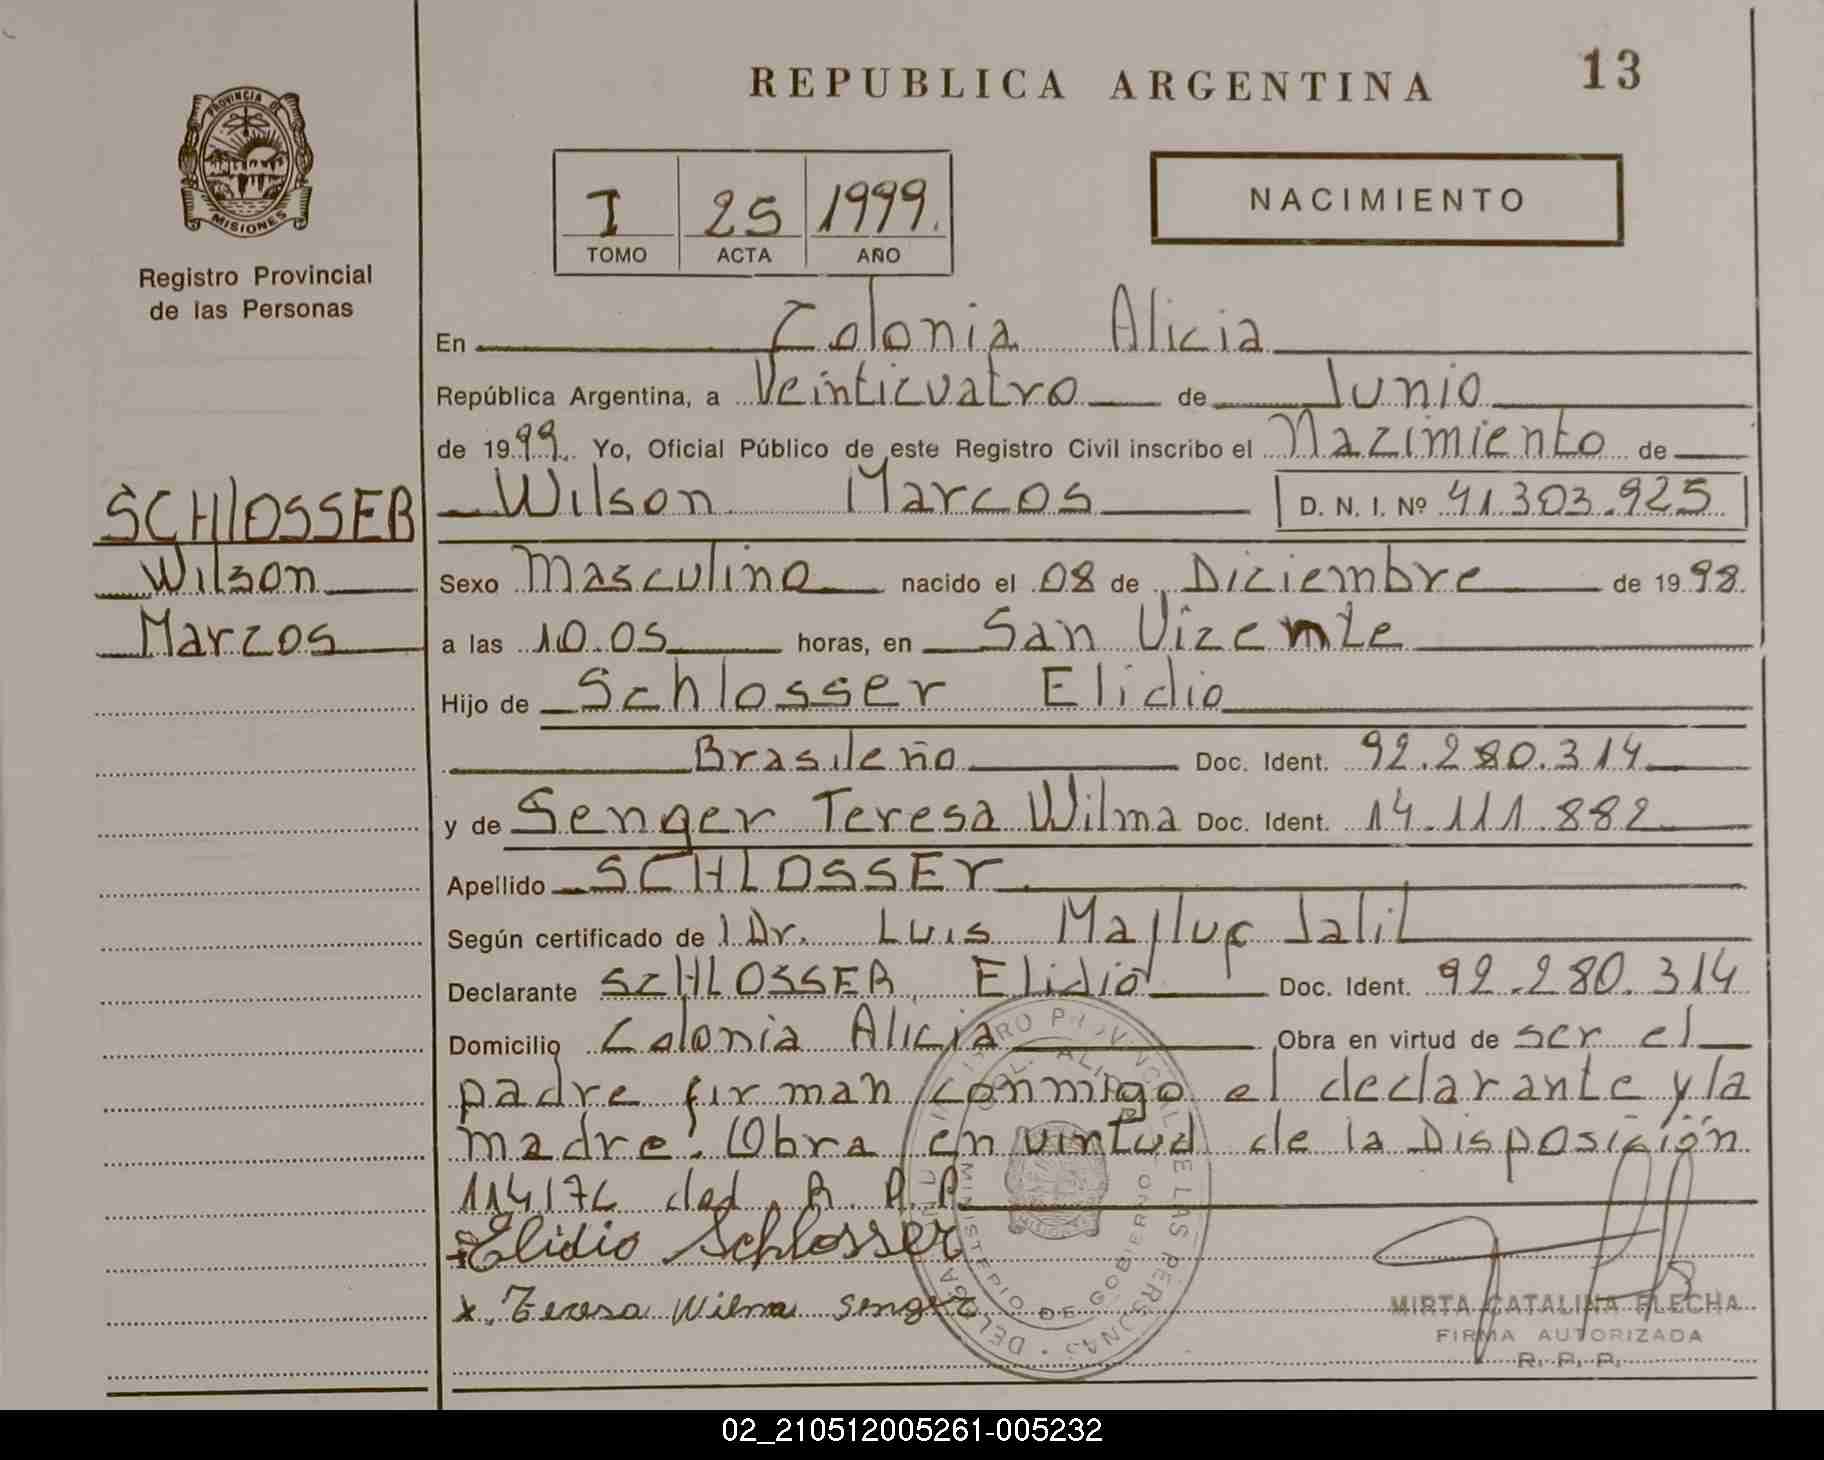 REPUBLICA ARGENTINA
13
PROVINCIA DE
MISIONES
Registro Provincial
de las Personas
I 25 1999.
TOMO ACTA AÑO
NACIMIENTO
En Colonia Alicia
República Argentina, a Veinticuatro de Junio
de 1999. Yo, Oficial Público de este Registro Civil inscribo el Nacimiento de
SCHLOSSER
Wilson Marcos D. N. I. Nº 41.303.925
Wilson
Sexo Masculino nacido el 08 de Diciembre de 1998.
Marcos
a las 10.05 horas, en San Vicente
Hijo de Schlosser Elidio
Brasileño Doc. Ident. 92.280.314
y de Senger Teresa Wilma Doc. Ident. 14.111.882
Apellido SCHLOSSEr
Según certificado de l Dr. Luis Jalil
Declarante SCHLOSSER Elidio Doc. Ident. 92.280.314
Domicilio Colonia Alicia Obra en virtud de ser el
padre firman conmigo el declarante y la
madre. Obra en virtud de la Disposición
114/76 del R.P.P.
Elidio Schlosser
x. Teresa Wilma Senger
MINISTERIO DE GOBIERNO
MIRTA CATALINA FLECHA
FIRMA AUTORIZADA
R. P. P.
02_210512005261-005232